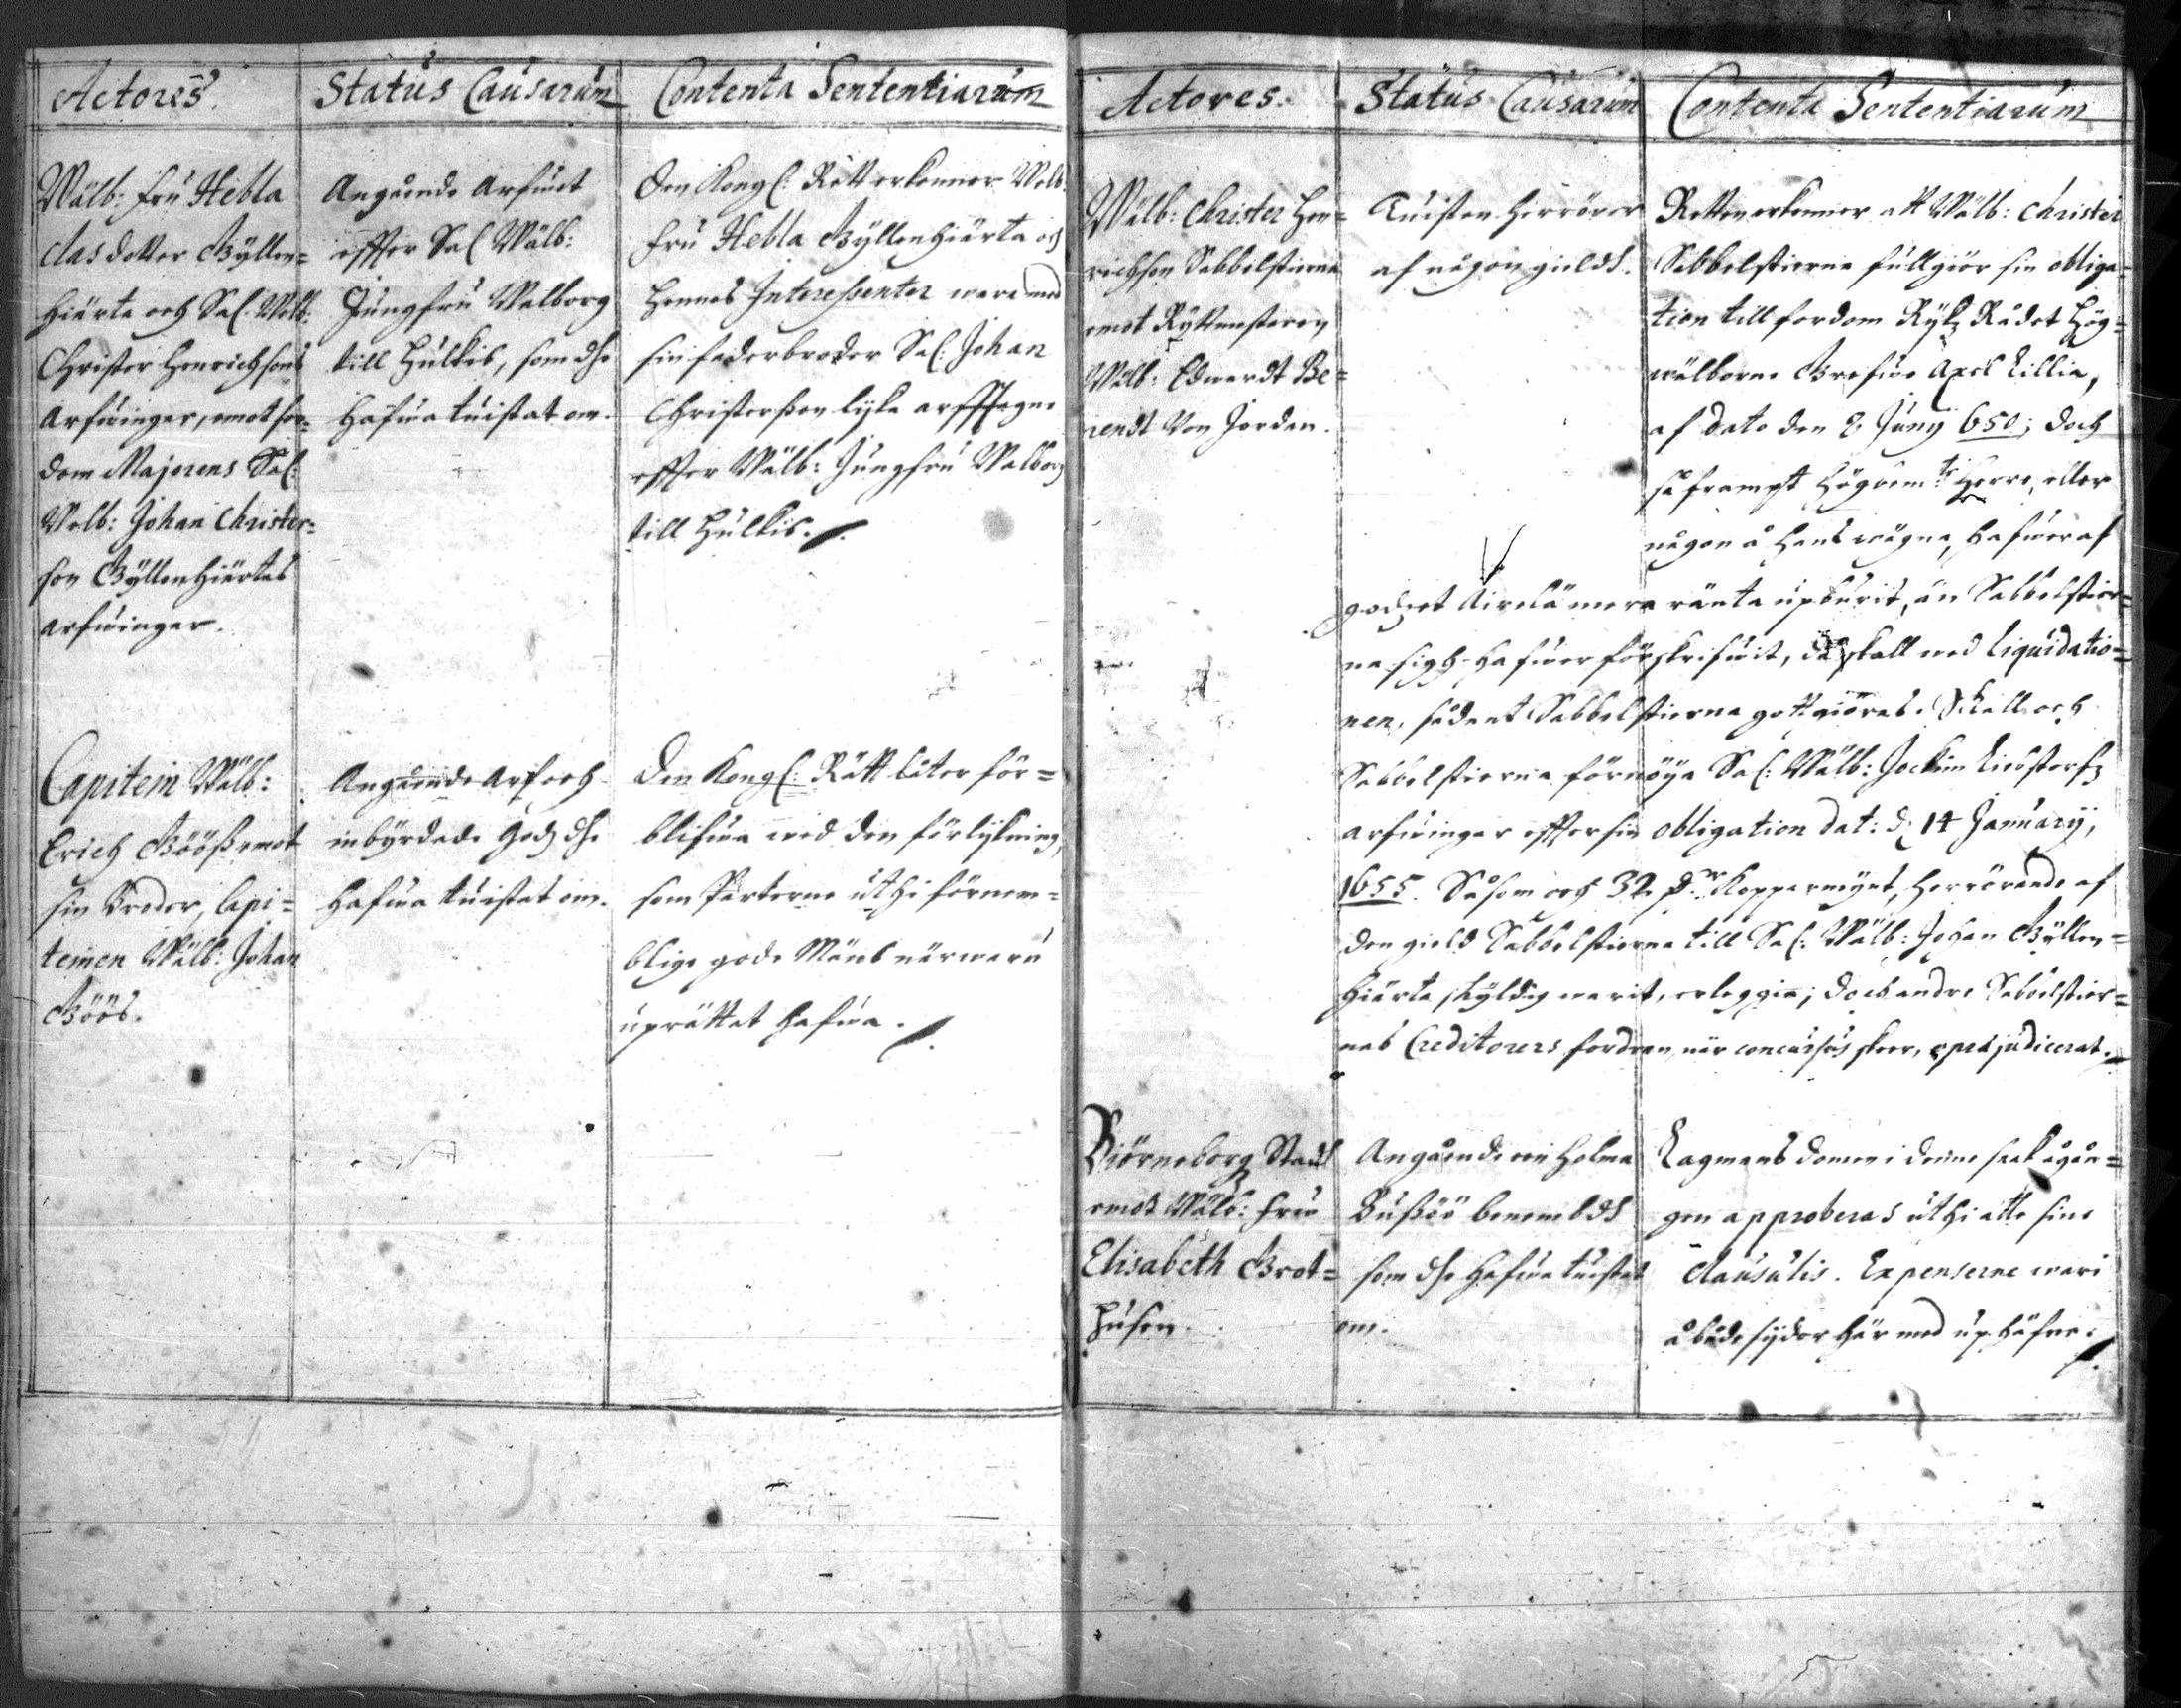 Actores.
Status Causarum
Contenta Sententiarum
Wälb: fru Hebla
Clas dotter Gyllen=
hiärta och Sal. Wälb:
Christer Henrichsons
Arfwinger, emot for=
dom Majorens Sal:
Welb: Johan Christer=
son Gyllenhiertas
arfwinger.
Angående Arfwet
effter Sal Wälb:
Jungfru Walborg
till Hulkis, som dhe
hafwa tuistat om.
Den Kongl: Rätt erkenner Welb:
fru Hebla Gyllenhiärta och
hennes Interessenter ware med
sin faderbroder Sal: Johan
Christersson lyka arfftagne
effter Wälb: Jungfru Walborg
till Hulkis.
Capitein Wälb:
Erich Bööss emot
sin Broder, Capi=
teinen Wälb: Johan
Böös.
Angående Arf och
inbyrdade Godz dhe
hafwa tuistat om.
Den Kongl: Rätt låter för=
blifwa wed den förlykning,
som Parterne uthi förnem=
blige gode Mäns närwaru
uprättat hafwa.
Actores.
Status Causarum
Contenta Sententiarum
Wälb: Christer Hen=
richson Sabbelstierna
emot Ryttmesteren
Wälb: Edwardt Be=
rendt Von Jorden.
Tuisten herrörer
af någon gieldh.
Retten erkenner att Wälb: Christer
Sabbelstierna fullgiör sin obliga=
tion till fordom Rykz Rådet Hög=
wälborne Grefwe Axel Lillia,
af dato den 8 Juny 650; doch
så frampt högbem:te Herre, eller
någon å hans wägna, hafwer af
godzet mera ränta upburit, än Sabbelstier=
na sigh hafwer förskrifwit, då skall wed liquidatio=
nen, sådant Sabbelstierna gott giöras. Skall och
Sabbelstierna förnöya Sal: Wälb: Jochim
arfwinger effter sin obligation dat: d. 14 January,
1655. Såsom och 32 Koppermynt, herrörande af
den gield Sabbelstierna till Sal: Wälb: Johan Gyllen=
hiärta skyldig warit, erleggia; doch andre Sabbelstier=
nas Creditorers fordran, när concursus skeer, opræjudicerat.
Biörneborg Stadh
emot Wälb: fru
Elisabeth Grot=
husen.
Angående een holma
Bussöö benembdh
som dhe hafwa tuistat
om.
Lagmans domen i denne saak ågån=
gen approberas uthi alle sine
Clausulis. Expenserne ware
å både sydor här med uphäfne.